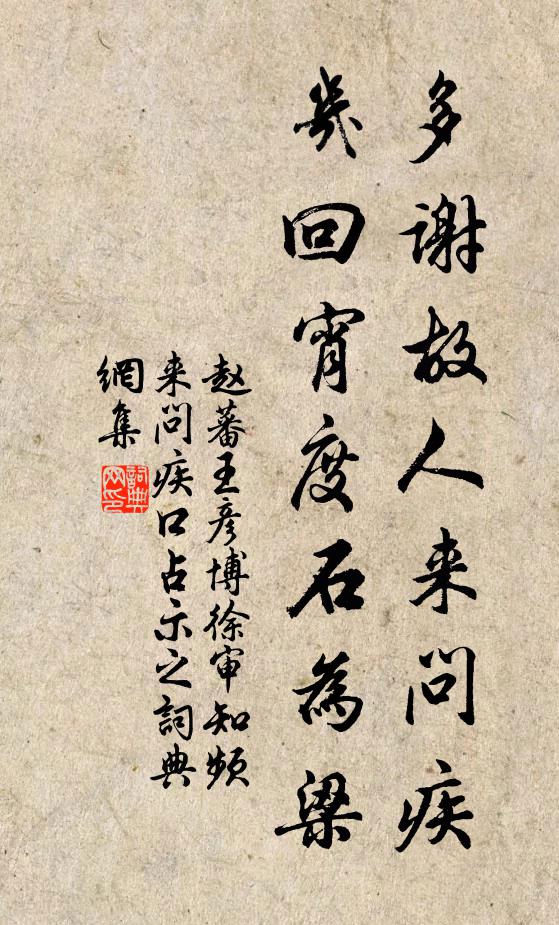 多谢故人来问疾
几回宵度石为梁
赵蕃王彦博徐审知频
来问疾口占示之词典
網集
詞典網印